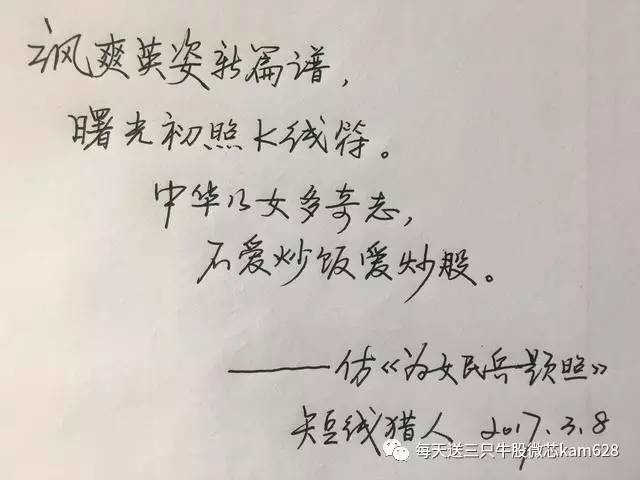 飒爽英姿新篇谱，
曙光初照K线符。
中华儿女多奇志，
不爱炒饭爱炒股。
——仿《为女民兵题照》
短线猎人 2017.3.8
每天送三只牛股微芯kam628